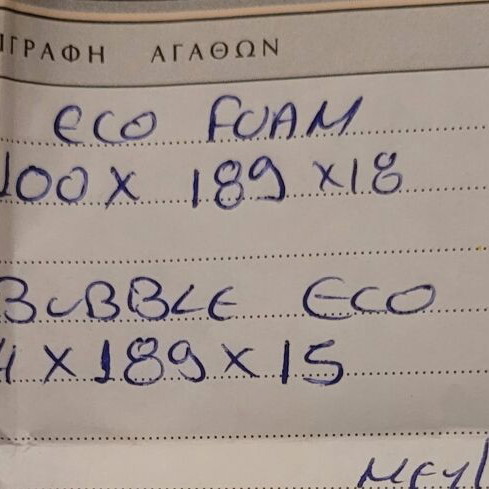 ΙΓΡΑΦΗ ΑΓΑΘΩΝ
ECO FOAM
100 x 189 x 18
BUBBLE ECO
x 189 x 15